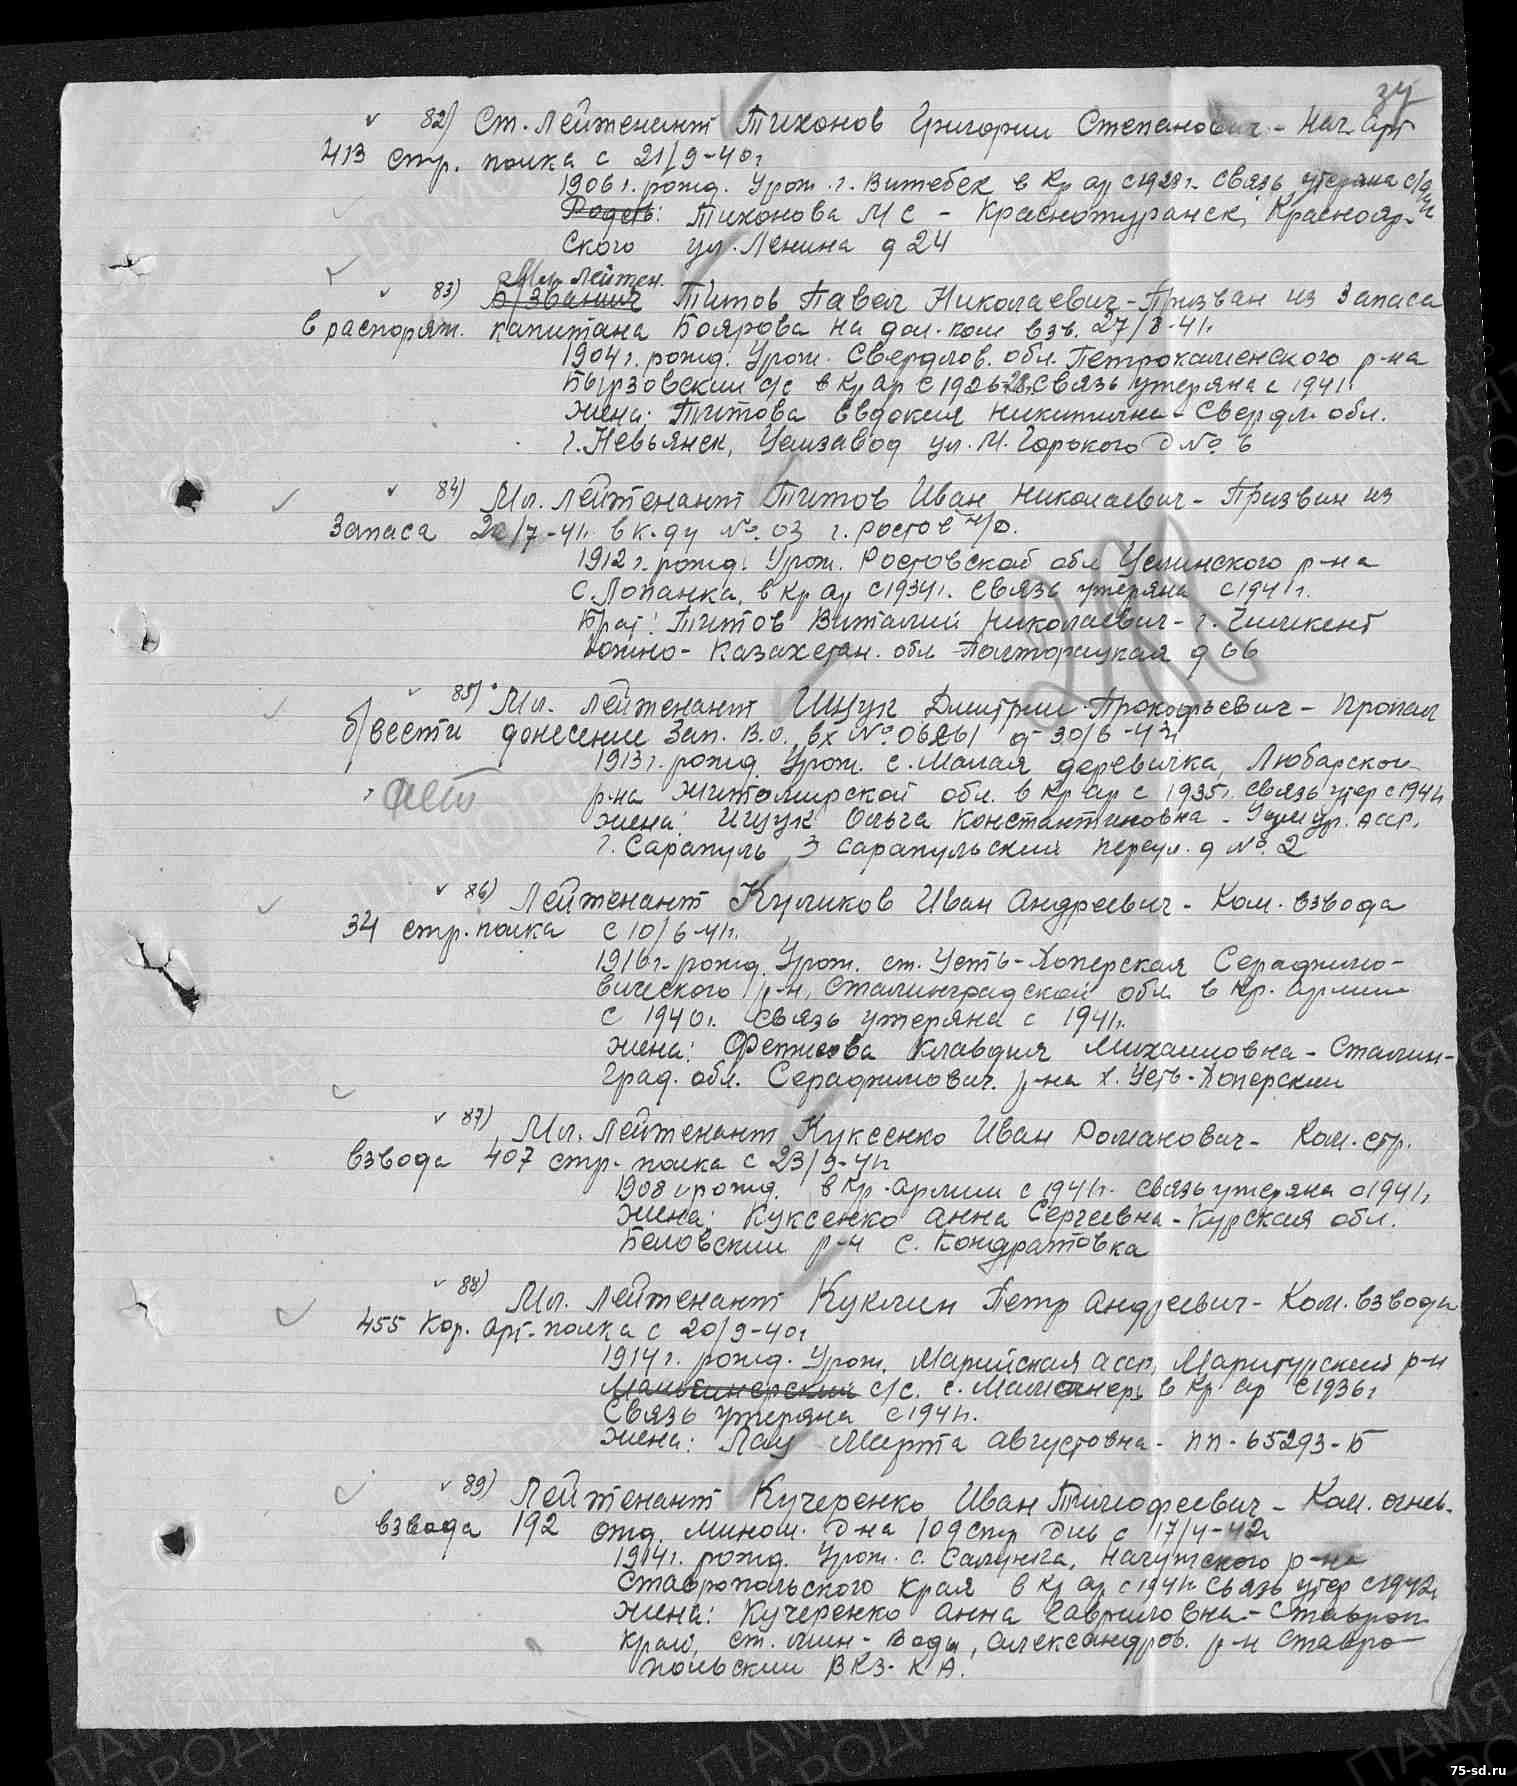 34
82) Ст. Лейтенант Тихонов Григории Степанович - Нач Арт
413 стр. полка с 21/9-40г
1906 г. рожд. Урож. г. Витебск в Кр ар с 1928 г. связь утеряна с/
Родств: Тихонова М С - Краснотуранск, Краснояр-
ского ул. Ленина д 24
Мл. Лейтен.
83) Б/звания Титов Павел Николаевич - Призван из Запаса
в распоряж. капитана Боярова на дол. ком взв. 27/8-41г.
1904 г. рожд. Урож. Свердлов. обл. Петрокаменского р-на
Бырзовский с/с в Кр Ар с 1926-28г. связь утеряна с 1941г.
жена: Титова Евдокия Никитична - Свердл. обл.
г. Невьянск, Цемзавод ул. М. Горького д № 6
84) Мл. лейтенант Титов Иван Николаевич - Призван из
Запаса /7-41г. в к-ду № 03 г. Ростов н/Д.
1912 г. рожд. Урож. Ростовской обл Целинского р-на
с. Лопанка, в Кр ар с 1934 г. связь утеряна с 1941 г.
Брат: Титов Виталий Николаевич - г. Чимкент
Южно-Казахстан. обл Полторацкая д 66
85) Мл. лейтенант Ищук Дмитрии Прокофьевич - пропал
б/вести донесение Зап. В.О. вх № 06261 от 30/6-43г
1913 г. рожд. Урож. с. Малая деревичка, Любарского
р-на Житомирской обл. в Кр Ар с 1935г. связь утер с 1941г
жена: Ищук Ольга Константиновна - Удмур. АССР,
г. Сарапуль, 3 сарапульский переул. д № 2
86) Лейтенант Куликов Иван Андреевич - Ком. взвода
34 стр. полка с 10/6-41г.
1916 г. рожд. Урож. ст. Усть-Хоперская Серафимо-
вического р-н, Сталинградской обл. в Кр. Армии
с 1940г. связь утеряна с 1941г.
жена: Фетисова Клавдия Михаиловна - Сталин-
град. обл. Серафимович. р-на х. Усть-Хоперский
87) Мл. лейтенант Куксенко Иван Романович - Ком. стр.
взвода 407 стр. полка с 23/9-41г
1908 г рожд. в Кр. Армии с 1941г. связь утеряна с 1941г,
жена: Куксенко Анна Сергеевна - Курская обл.
Беловский р-н с. Кондратовка
88) Мл. лейтенант Куклин Петр Андреевич - Ком. взвода
455 Кор. Арт. полка с 20/9-40г
1914 г. рожд. Урож. Марийская АССР, Маритурский р-н
с/с. с. в Кр Ар с 1936г
связь утеряна с 1941г.
жена: Лау Марта Августовна - ПП - 65293-Б
89) Лейтенант Кучеренко Иван Тимофеевич - Ком. огнев.
взвода 192 отд. мином. д-на 109 стр див с 17/4-42г
1914г. рожд. Урож. с. р-на
Ставропольского края в Кр Ар с 1941г связь утер с 1942г
жена: Кучеренко Анна Гавриловна - Ставроп
край, ст. Мин-Воды, Александров. р-н Ставро-
польский ВКЗ-КА.
75-sd.ru